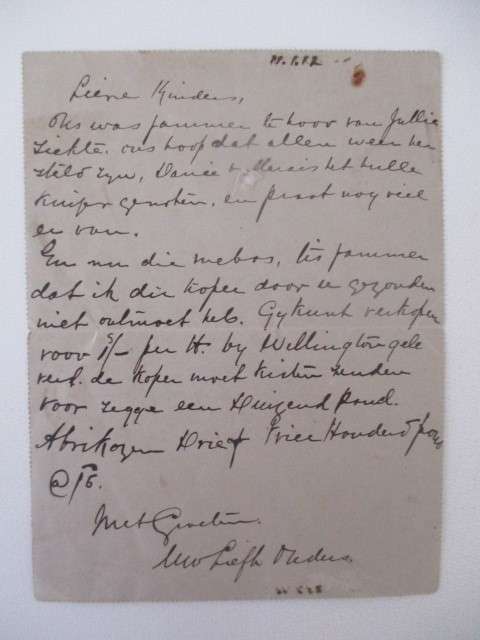 Lieve Kinders,
Ons was jammer te hoor van Jullie
Ziekte. ons hoop dat allen weer her
steld zyn, Danie & Marais het hulle
kuijer genoten, en praat nog veel
er van.
En nu die mebos, tis jammer
dat ik die koper door u gezonden
niet ontmoet heb. Gy kunt verkopen
voor 1/- per lb. by Wellington gele
verd. de koper moet kisten zenden
voor zegge een Duizend pond.
Abrikozen Drie Honderd pond
@ 1/6.
Met Groeten
Uw Liefh Ouders.